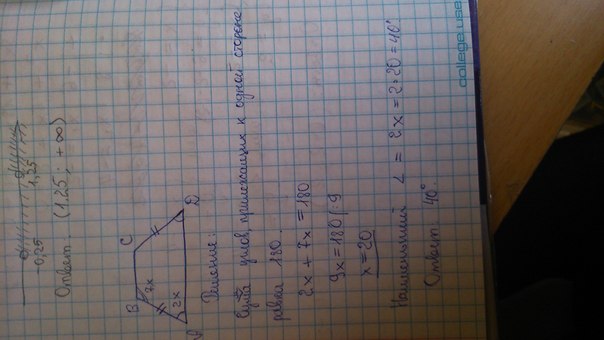 -0,25 1,25
Ответ: (1,25; +∞)
B C
7x
2x
A D
Решение:
Сумма углов, прилежащих к одной стороне
равна 180.
2x + 7x = 180
9x = 180 | : 9
x = 20
Наименьший ∠ = 2x = 2·20 = 40°
Ответ: 40°.
college.use